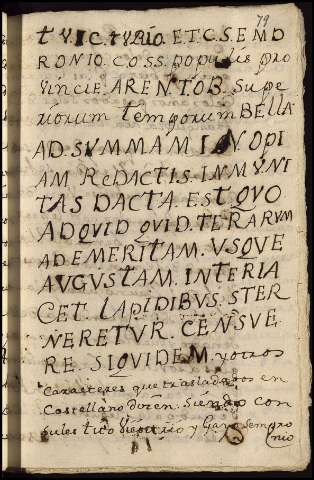 79
t VICTURIO. ET. C. SEMD
RONIO. COSS. populis pro
vincie. ARENTOB. Supe
riorum temporum BELLA
AD. SUMMAM INOPI
AM ReDACTIS. INMVNI
TAS DACTA. EST QVO
ADQVID QVID. TERARVM
AD EMERITAM. VSQVE
AVGVSTAM. INTERIA
CET. LApIDIBVS. STER
NERETVR. CENSVE
RE. SIQVIDEM. y otros
Caracteres que trasladados en
Castellano dicen. Siendo con
sules tito y Gayo Sempro
nio